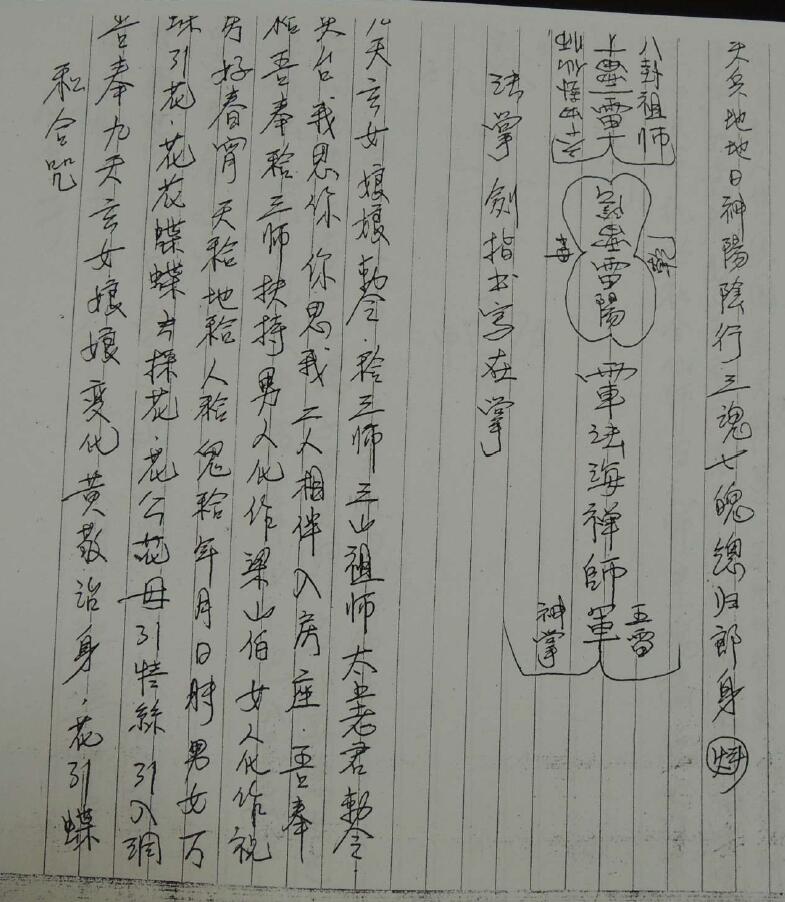 和合咒
吾奉九天玄女娘娘变化黄敬治身．花引蝶
引花．花花蝶蝶去採花．花公花母引情絲 引入
男好春宵 天秴地秴人秴鬼秴年月日時男女万
秴吾奉秴三师扶持男人化作梁山伯女人化作祝
英台我思你你思我二人相伴入房座．吾奉
九天玄女娘娘勅令．秴三师三山祖师太上老君勅令．
法掌 劍指书写在掌
八卦祖师
雷陽
法海禅師
五雷
神掌
天兵地地日神陽陰行三魂七魄總归郎身